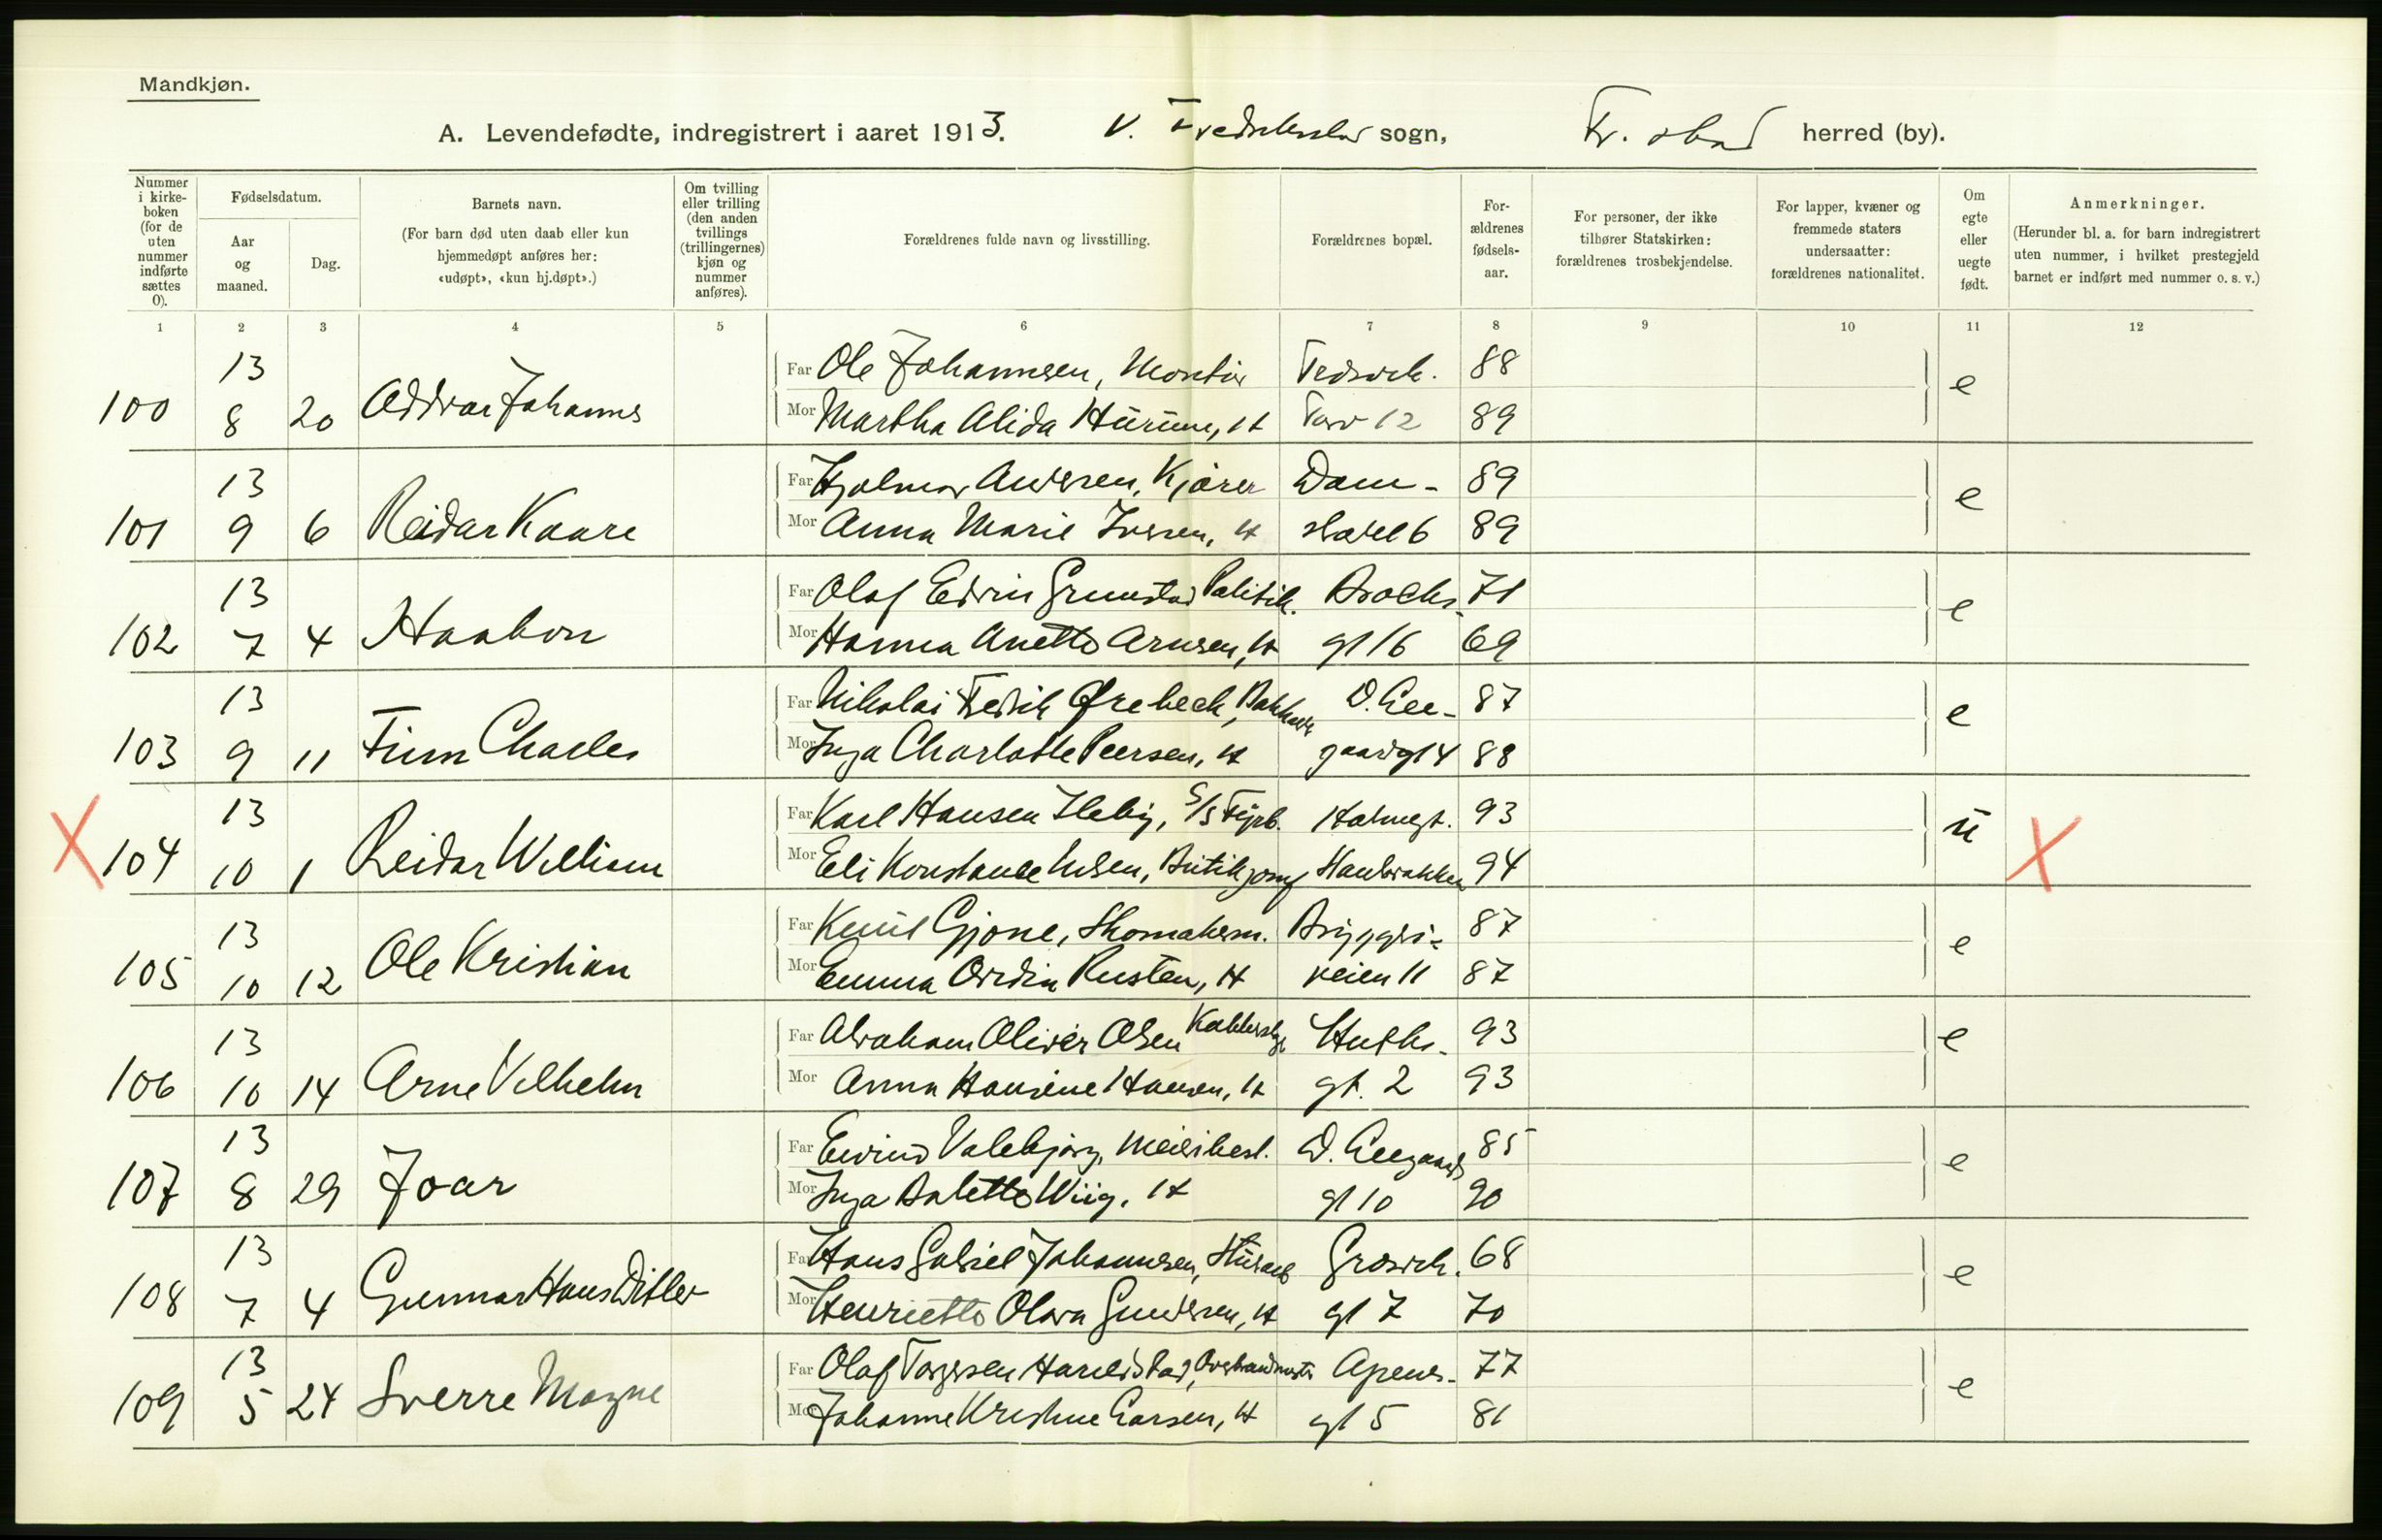 Mandkjøn.
A. Levendefødte, indregistrert i aaret 1913. V. sogn, Fr. stad herred (by).
Nummer i kirke- boken (for de uten nummer indførte sættes 0).
Fødselsdatum.
Aar og maaned.
Dag.
Barnets navn.
(For barn død uten daab eller kun hjemmedøpt anføres her: «udøpt», «kun hj.døpt».)
Om tvilling eller trilling (den anden tvillings (trillingernes) kjøn og nummer anføres).
Forældrenes fulde navn og livsstilling.
Forældrenes bopæl.
For- ældrenes fødsels- aar.
For personer, der ikke tilhører Statskirken: forældrenes trosbekjendelse.
For lapper, kvæner og fremmede staters undersaatter: forældrenes nationalitet.
Om egte eller uegte født.
Anmerkninger.
(Herunder bl. a. for barn indregistrert uten nummer, i hvilket prestegjeld barnet er indført med nummer o. s. v.)
1 2 3 4 5 6 7 8 9 10 11 12
13 Far Ole Johannesen, Montør 88
100 8 20 Oddvar Johannes Mor Martha Alida 12 89 e
13 Far Hjalmar Andersen, Kjører Dam- 89
101 9 6 Reidar Kaare Mor Anna Marie Iversen, H 6 89 e
13 Far Olaf Edvin Grimstad Politik. Brochs- 71
102 7 4 Haakon Mor Hanna Anette Arnesen, H gt 16 69 e
13 Far Nikolai Fredrik Ørebeck, O. Ee- 87
103 9 11 Finn Charles Mor Inga Charlotte Peersen, H gaardsgt 4 88 e
13 Far Karl Hansen S/S Fyrb. Holmegt. 93
X 104 10 1 Reidar William Mor Eli Konstance 94 u X
13 Far Knut Gjone, Skomakerm. Bryggeri- 87
105 10 12 Ole Kristian Mor Emma Ovidia Rusten, H veien 11 87 e
13 Far Abraham Oliver Olsen 93
106 10 14 Arne Vilhelm Mor Anna Hansine Hansen, H gt. 2 93 e
13 Far Eivind Valebjørg, Meieribest. O. Eegaards 85
107 8 29 Joar Mor Inga Wiig, H gt 10 90 e
13 Far Hans Gabriel Johannesen, 68
108 7 4 Gunnar Hans Ditlev Mor Henriette Olava Gundersen, H gt 7 70 e
13 Far Olaf Torgersen Apenes- 77
109 5 24 Sverre Magne Mor Johanne Kristine Larsen, H gt 5 81 e